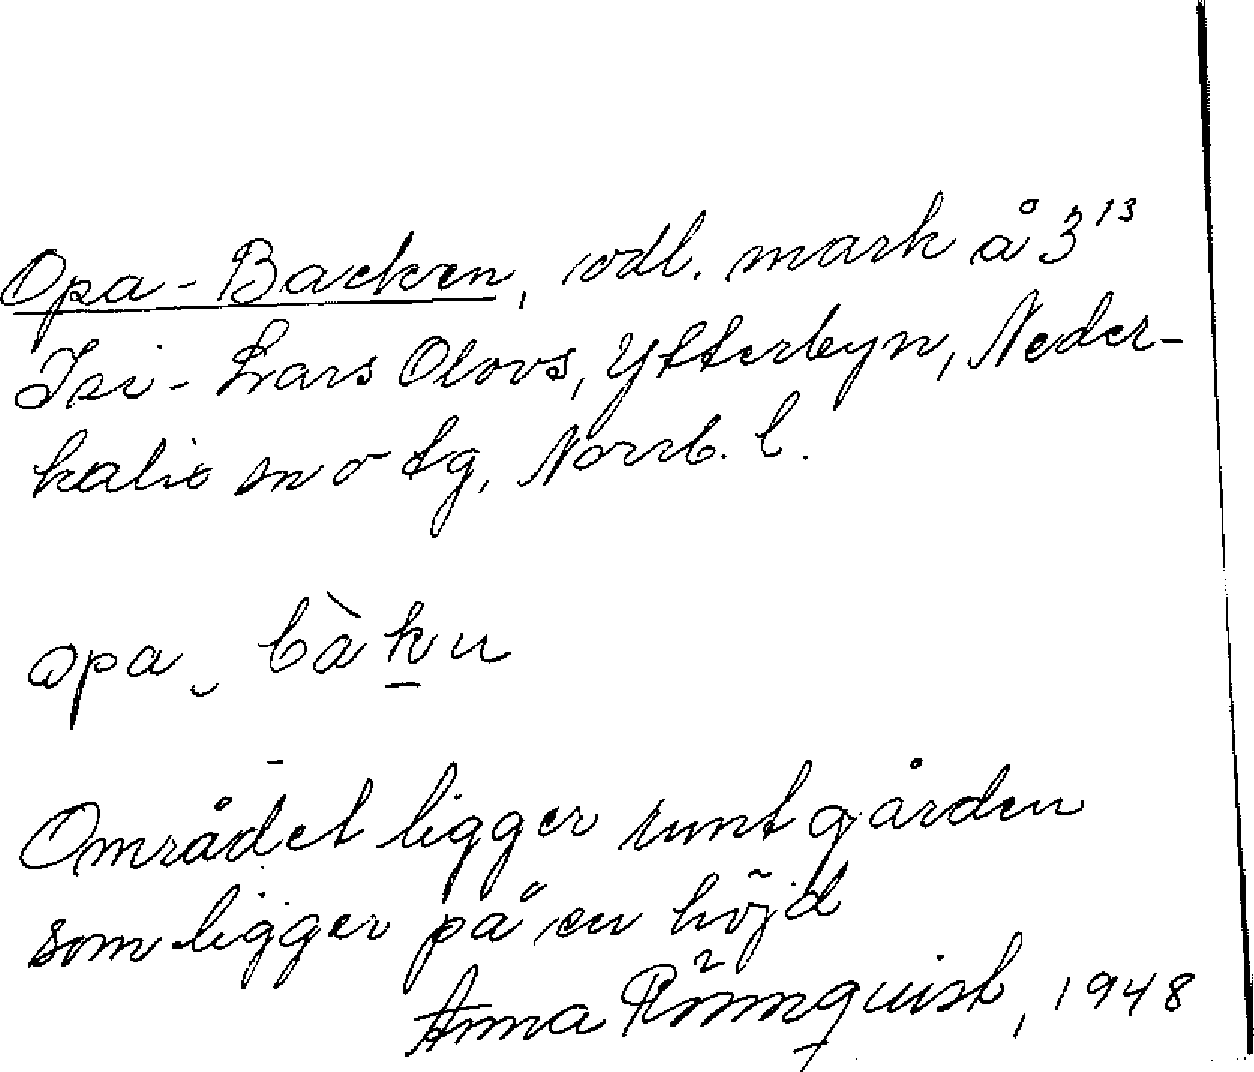 Opa-Backen, odl. mark å 3¹³
Isi-Lars Olovs, Ytterbyn, Neder-
kalix sn o tg, Norrb. l.
opa ̮ bàk̲u
Området ligger runt gården
som ligger på en höjd
Anna Rönnquist, 1948